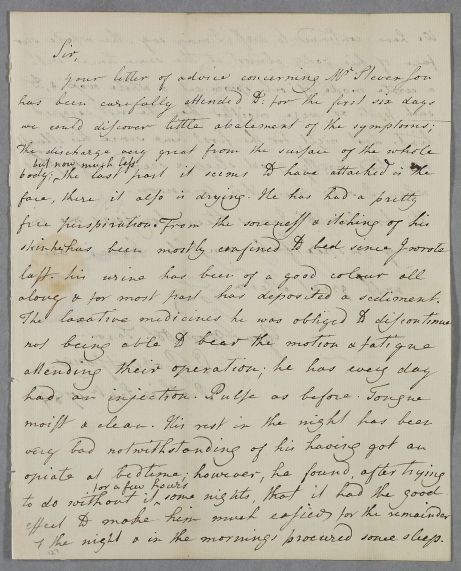 Sir,
your letter of advice concerning Mr Stevenson
has been carefully attended to: for the first six days
we could discover little abatement of the symptoms;
the discharge very great from the surface of the whole
but now much less
body; the last part it seems to have attacked is the
face, there it also is drying. He has had a pretty
free perspiration. From the soreness & itching of his
skin he has been mostly confined to bed since I wrote
last: his urine has been of a good colour all
along & for most part has deposited a sediment.
The laxative medicines he was obliged to discontinue
not being able to bear the motion & fatigue
attending their operation; he has every day
had an injection. Pulse as before. Tongue
moist & clean. His rest in the night has been
very bad notwithstanding of his having got an
opiate at bedtime; however, he found, after trying
for a few hours
to do without it ^ some nights, that it had the good
effect to make him much easier for the remainder
of the night & in the mornings procured some sleep.